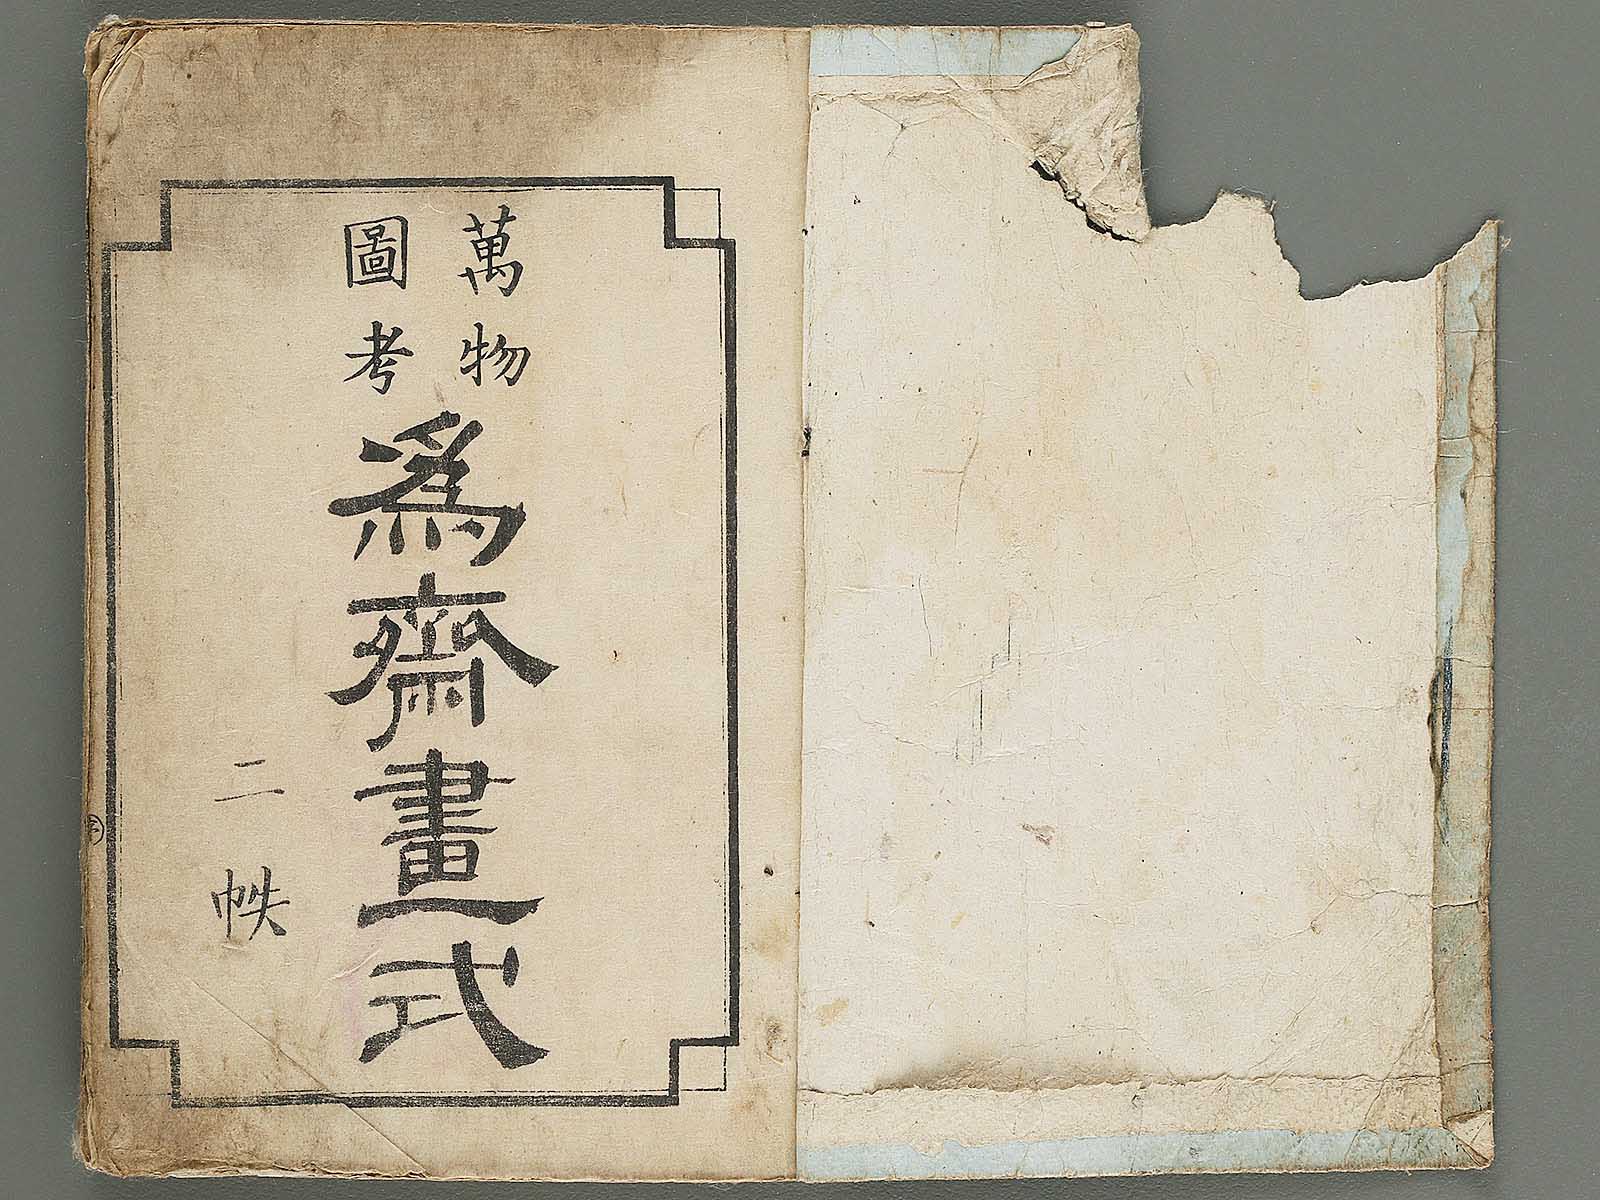 萬物
圖考
為齋畫式
二帙